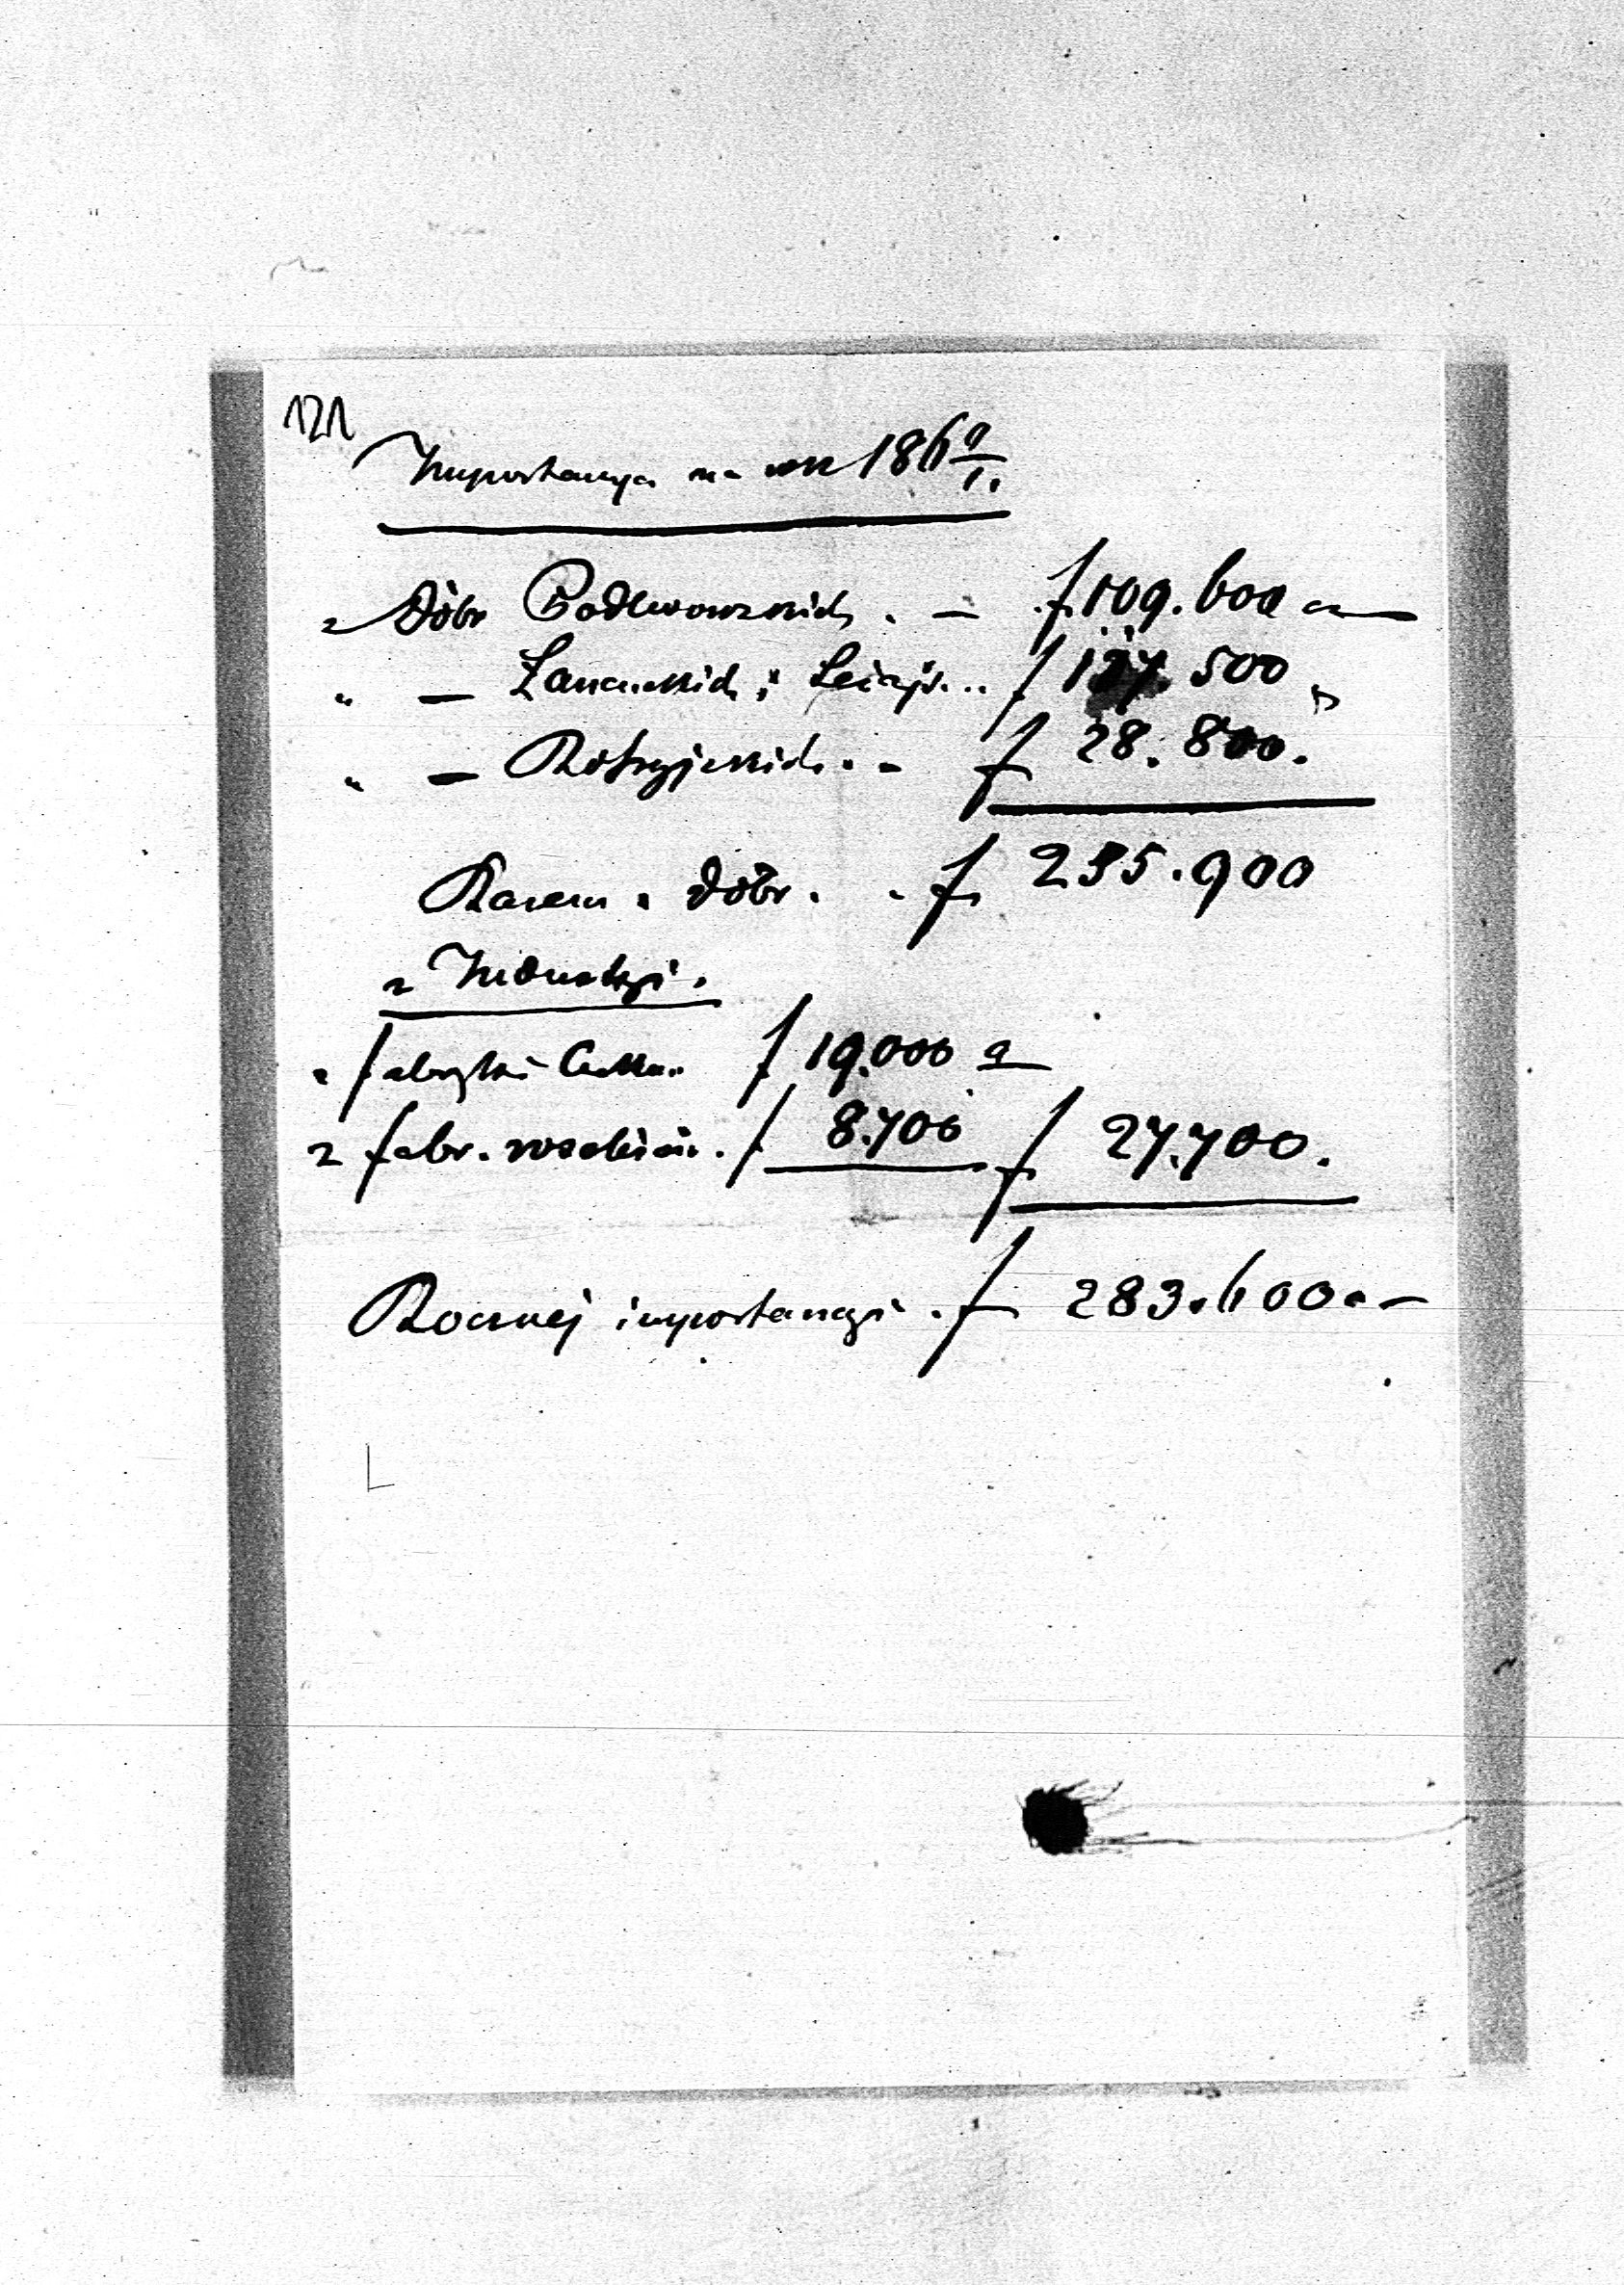 121
Importancya na rok 186 0/1.
z Dóbr Podlwowskich . — f 109.600 —
„ — Łańcuckich i Leżajs... f 117.500 „
„ — f 28.800.
Razem z dóbr . . f 255.900
z Industryi.
z fabryki Cukru.. f 19.000 —
z fabr. f 8.700 f 27.700.
Rocznej importancyi . f 283.600 . —